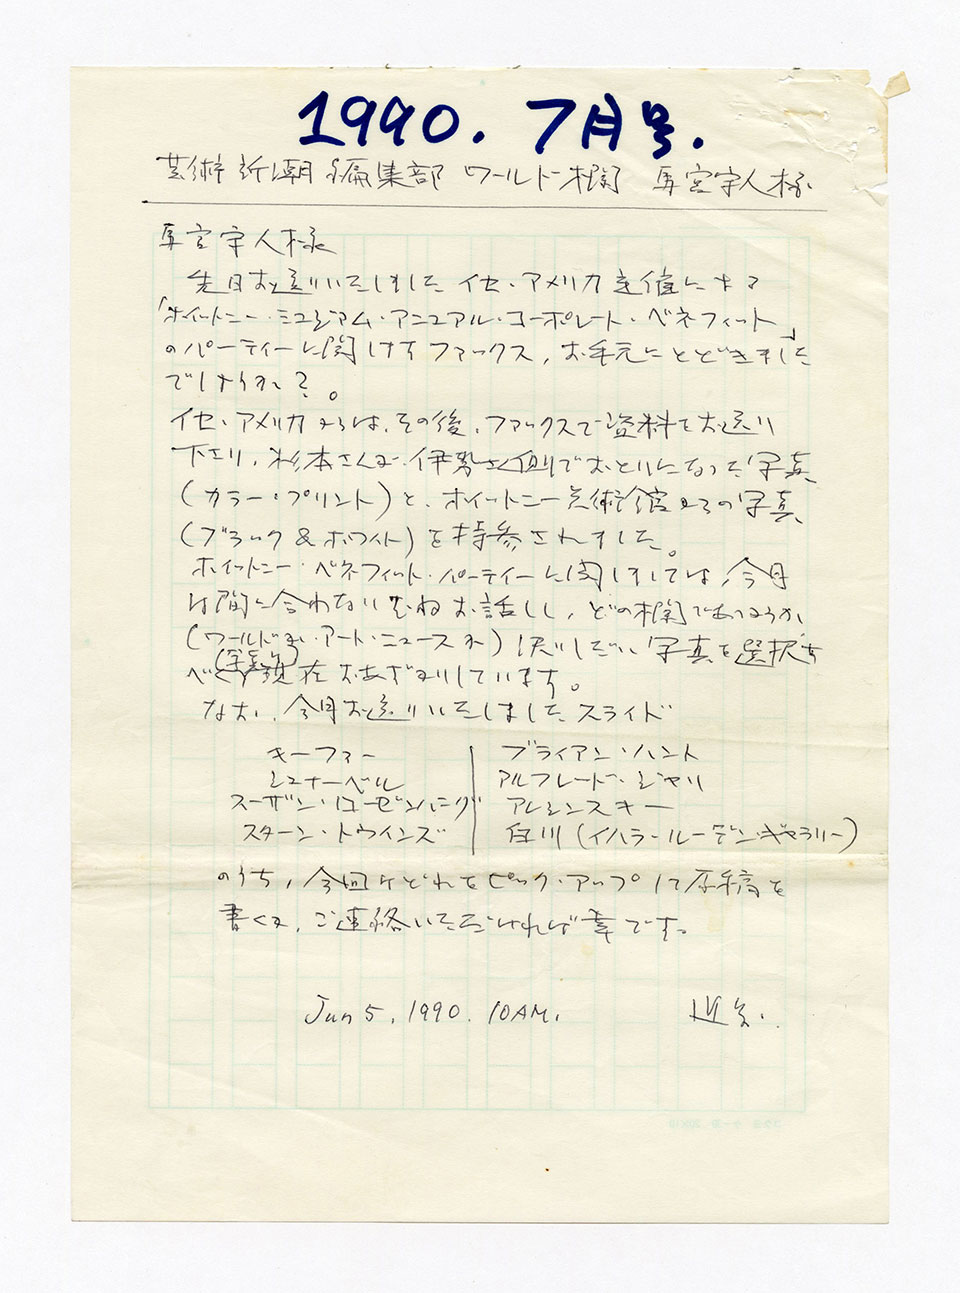 1990. 7月号.
芸術新潮編集部 ワールド欄 馬宮宇人様
馬宮宇人様
先日お送りいたしました イセ・アメリカ主催による
「ホイットニー・ミュジアム・アニュアル・コーポレート・ベネフィット」
のパーティーに関するファックス, お手元にとどきました
でしょうか?。
イセ・アメリカからは, その後, ファックスで資料をお送り
下さり, 杉本さんが, 伊勢さん側でおとりになった写真
(カラー・プリント)と, ホイットニー美術館からの写真
(ブラック&ホワイト)を持参されました。
ホイットニー・ベネフィット・パーティーに関しましては, 今月
は間に合わないむねお話しし, どの欄であつかうか
(ワールドか, アート・ニュースか) 決りしだい 写真を選択す
べく(写真を)現在おあずかりしています。
なお, 今月お送りいたしましたスライド
キーファー
シュナーベル
スーザン・ローゼンバーグ
スターン・トウインズ
ブライアン・ハント
アルフレード・ジャリ
アレシンスキー
白川 (イハラ・ルーデンス・ギャラリー)
のうち, 今回はどれをピック・アップして原稿を
書くか, ご連絡いただければ幸です。
Jun 5, 1990. 10AM.
コクヨ ケー 20×10